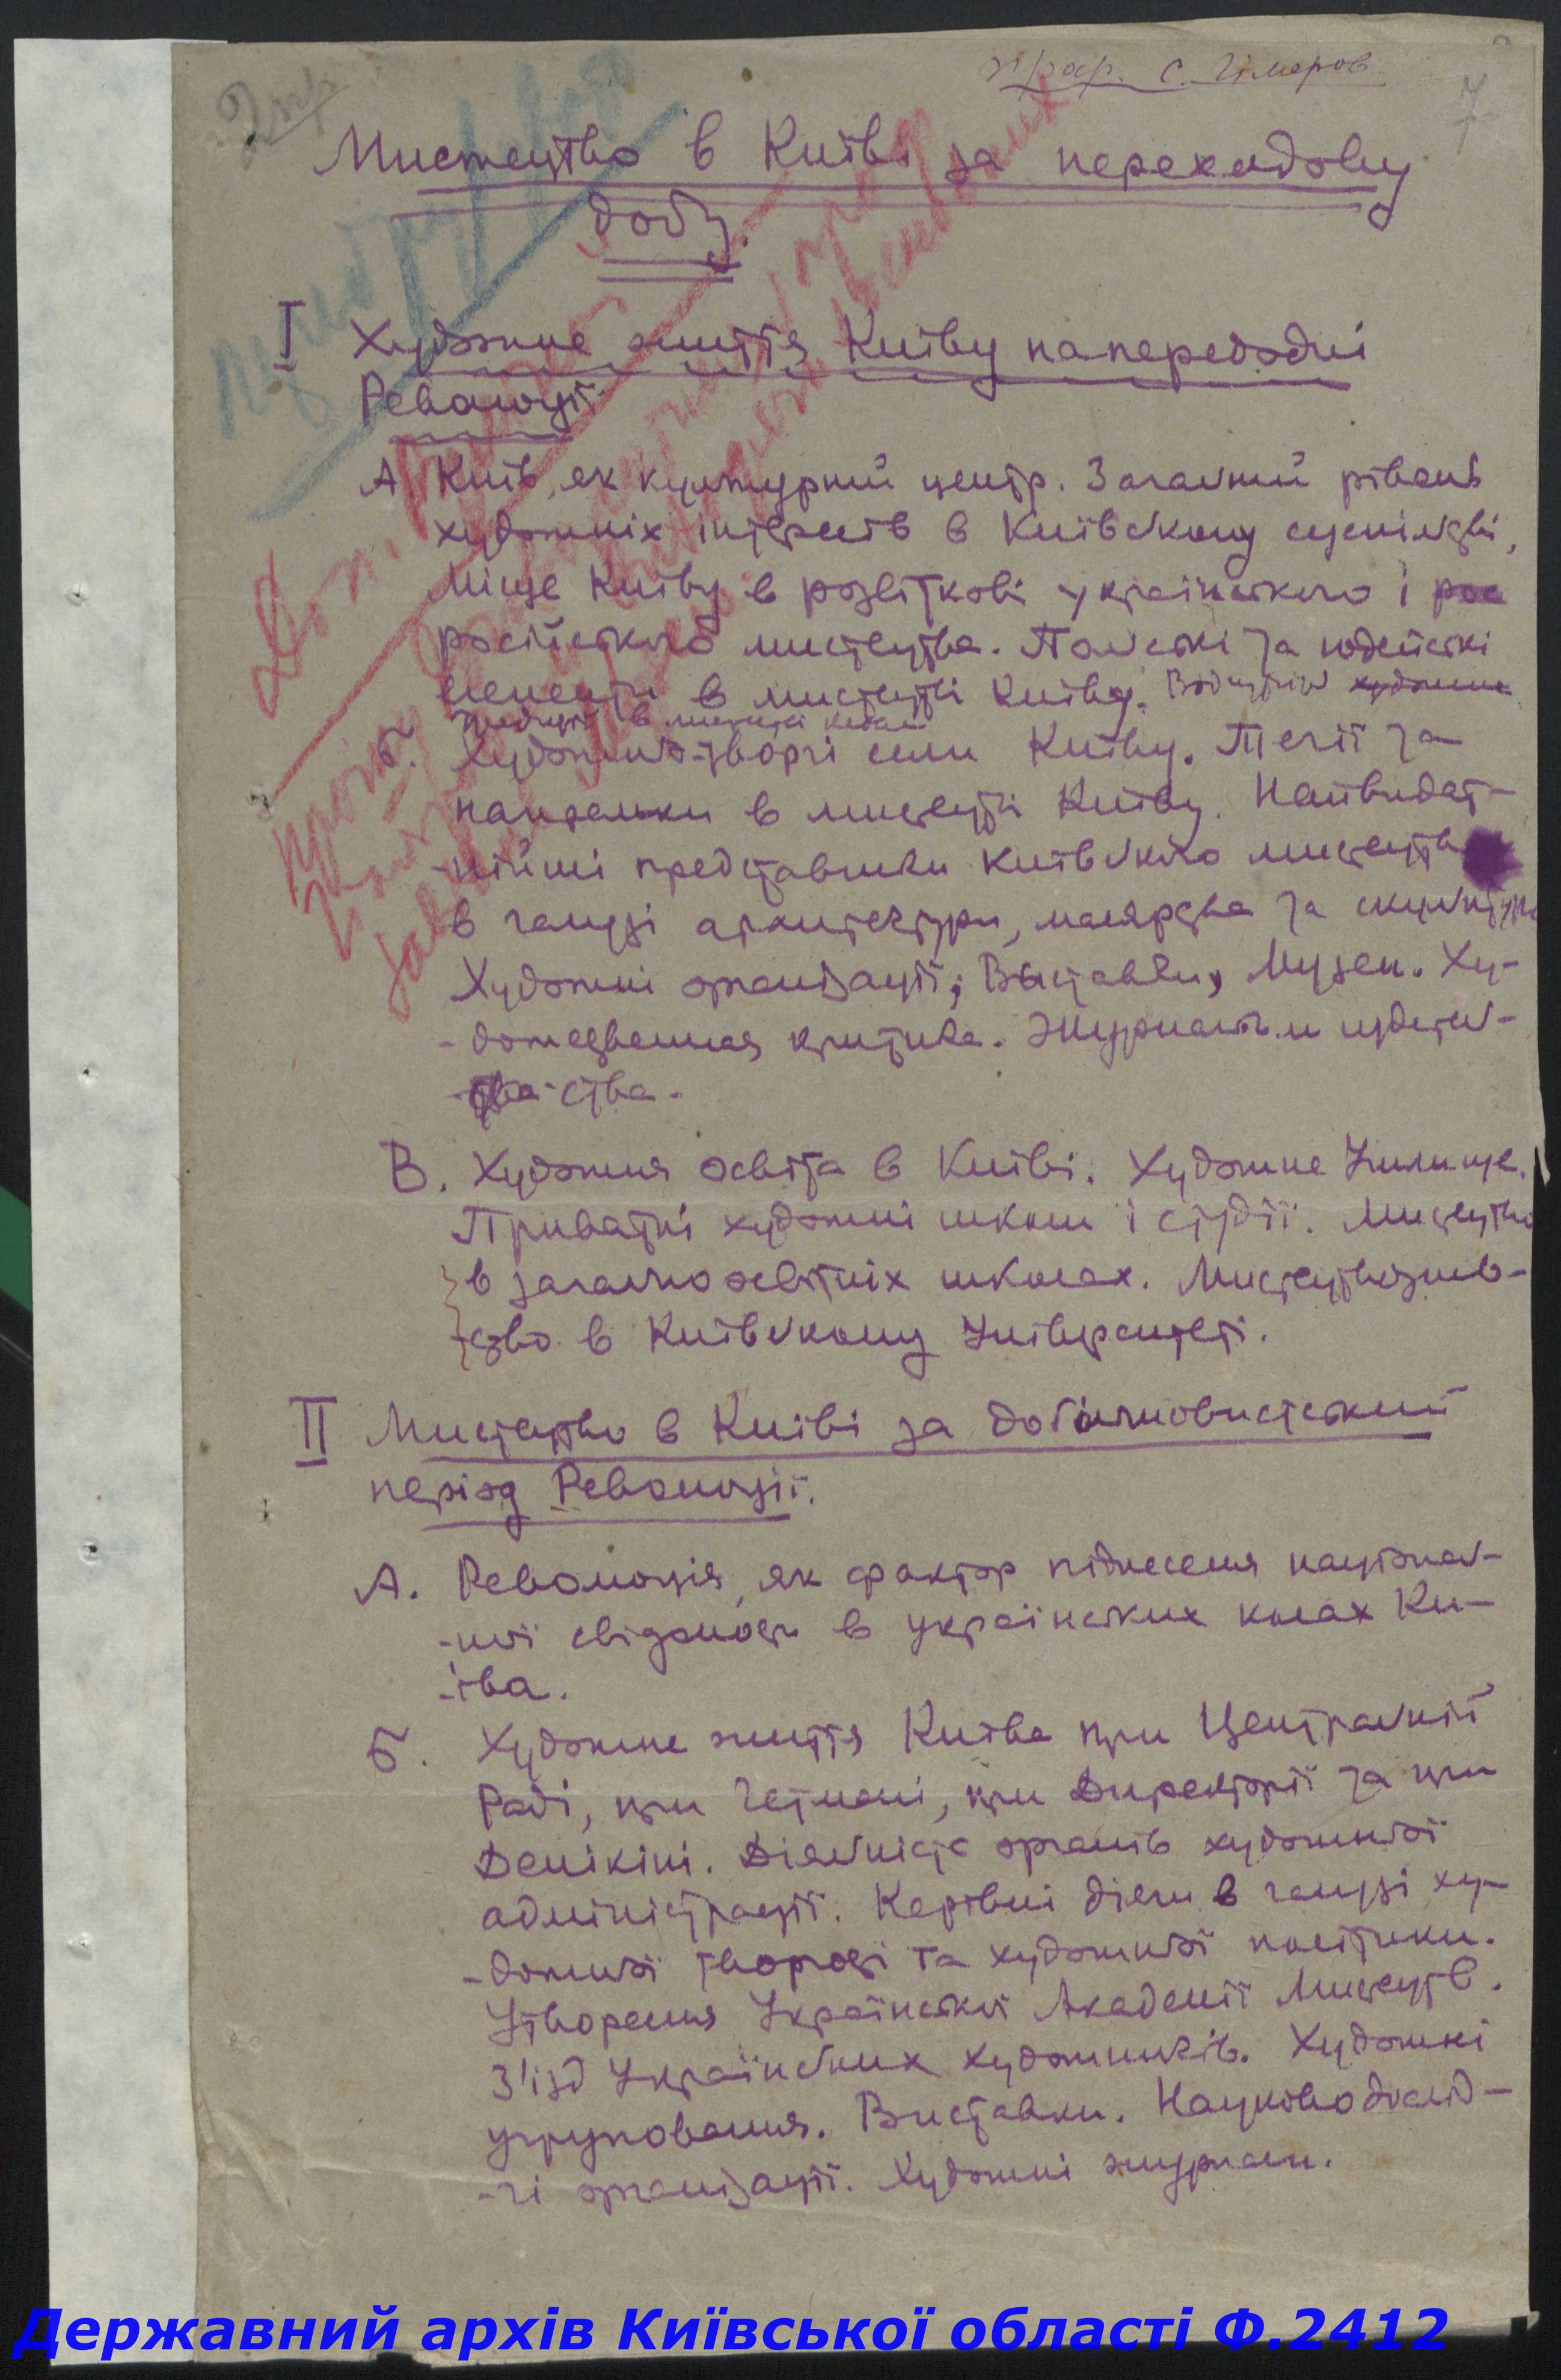 проф. С. Гіляров
7
2 пр
Мистецтво в Київі за переходову
добу.
I Художне життя Київу напередодні
Революції
А. Київ, як культурний центр. Загальний рівень
художніх інтересів в Київському суспільстві,
Місце Київу в розвіткові українського і рос
російського мистецтва. Польські та юдейські
елементи в мистецтві Київу. художне
в мистецтві
Б. Художньо-творчі сили Київу. Течії та
напрямки в мистецтві Київу. Найвидат-
-нійші представники Київського мистецтва
в галузі архитектури, малярства та скульптури
Художні організації; Выставки, Музеи. Ху-
-дожественная критика. Журналы и издатель-
-ства.
В. Художня освіта в Київі. Художне Училище.
Приватні художні школи і студії. Мистецтво
в загальноосвітніх школах. Мистецтвознав-
-ство в Київському Університеті.
II Мистецтво в Київі за добільшовистський
період Революції.
А. Революція, як фактор піднесення національ-
-ної свідомости в українських колах Ки-
-іва.
Б. Художне життя Київа при Центральній
Раді, при Гетмані, при Директорії та при
Денікіні. Діяльність органів художньої
адміністрації. Керівні діячи в галузі ху-
-дожньої творчості та художньої політики.
Утворення Української Академії Мистецтв.
З'їзд Українських Художників. Художні
угруповання. Виставки. Науководослід-
-чі організації. Художні журнали.
Державний архів Київської області Ф.2412